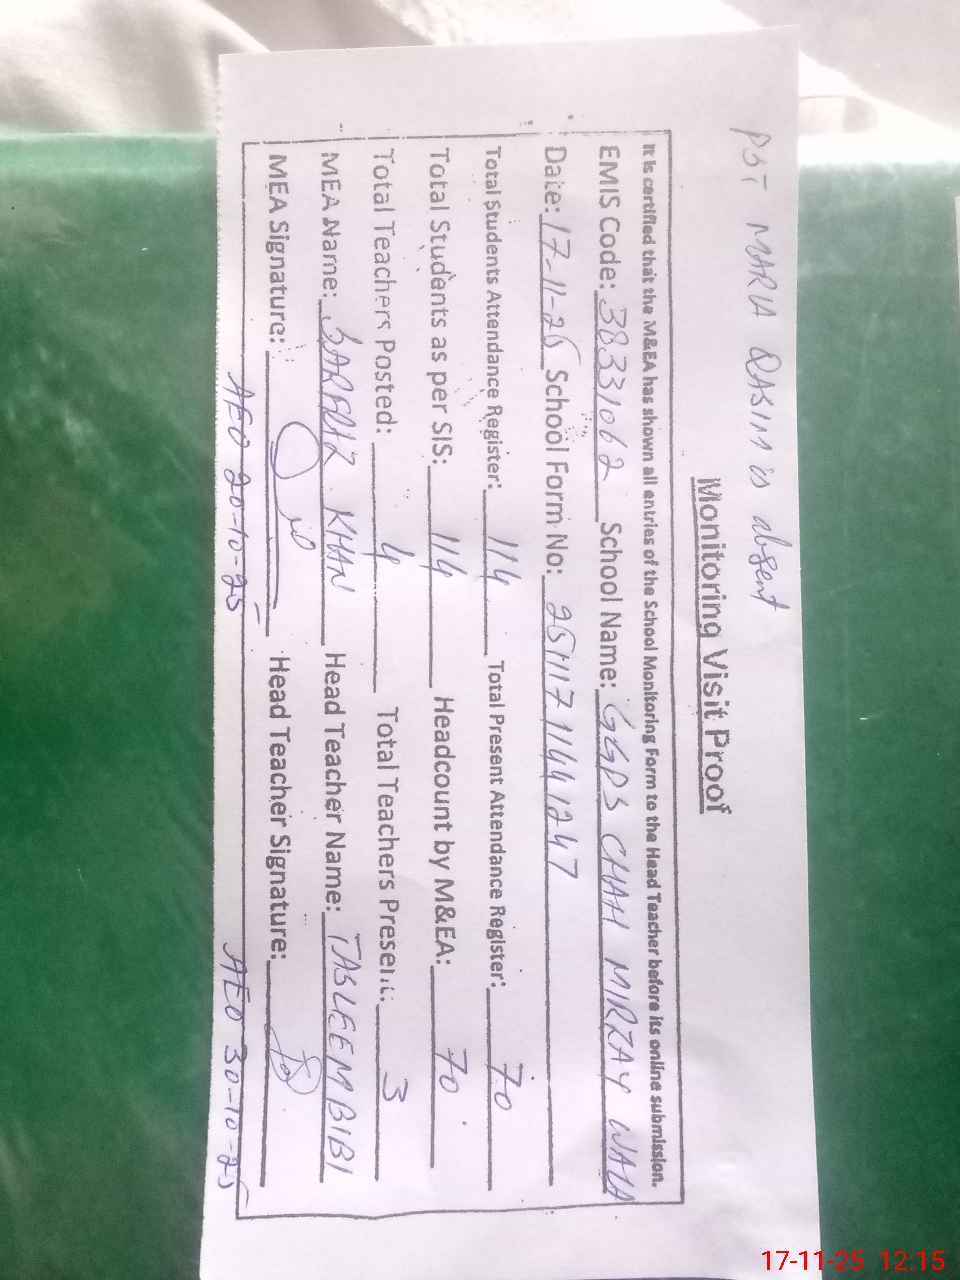 PST MARIA QASIM is absent
Monitoring Visit Proof
It is certified that the M&EA has shown all entries of the School Monitoring Form to the Head Teacher before its online submission.
EMIS Code: 38331062 School Name: GGPS CHAH MIRZAY WALA
Date: 17-11-25 School Form No: 25111711441247
Total Students Attendance Register: 114 Total Present Attendance Register: 70
Total Students as per SIS: 114 Headcount by M&EA: 70
Total Teachers Posted: 4 Total Teachers Present: 3
MEA Name: SARFRAZ KHAN Head Teacher Name: TASLEEM BIBI
MEA Signature: Head Teacher Signature:
AEO 20-10-25 AEO 30-10-25
17-11-25 12:15